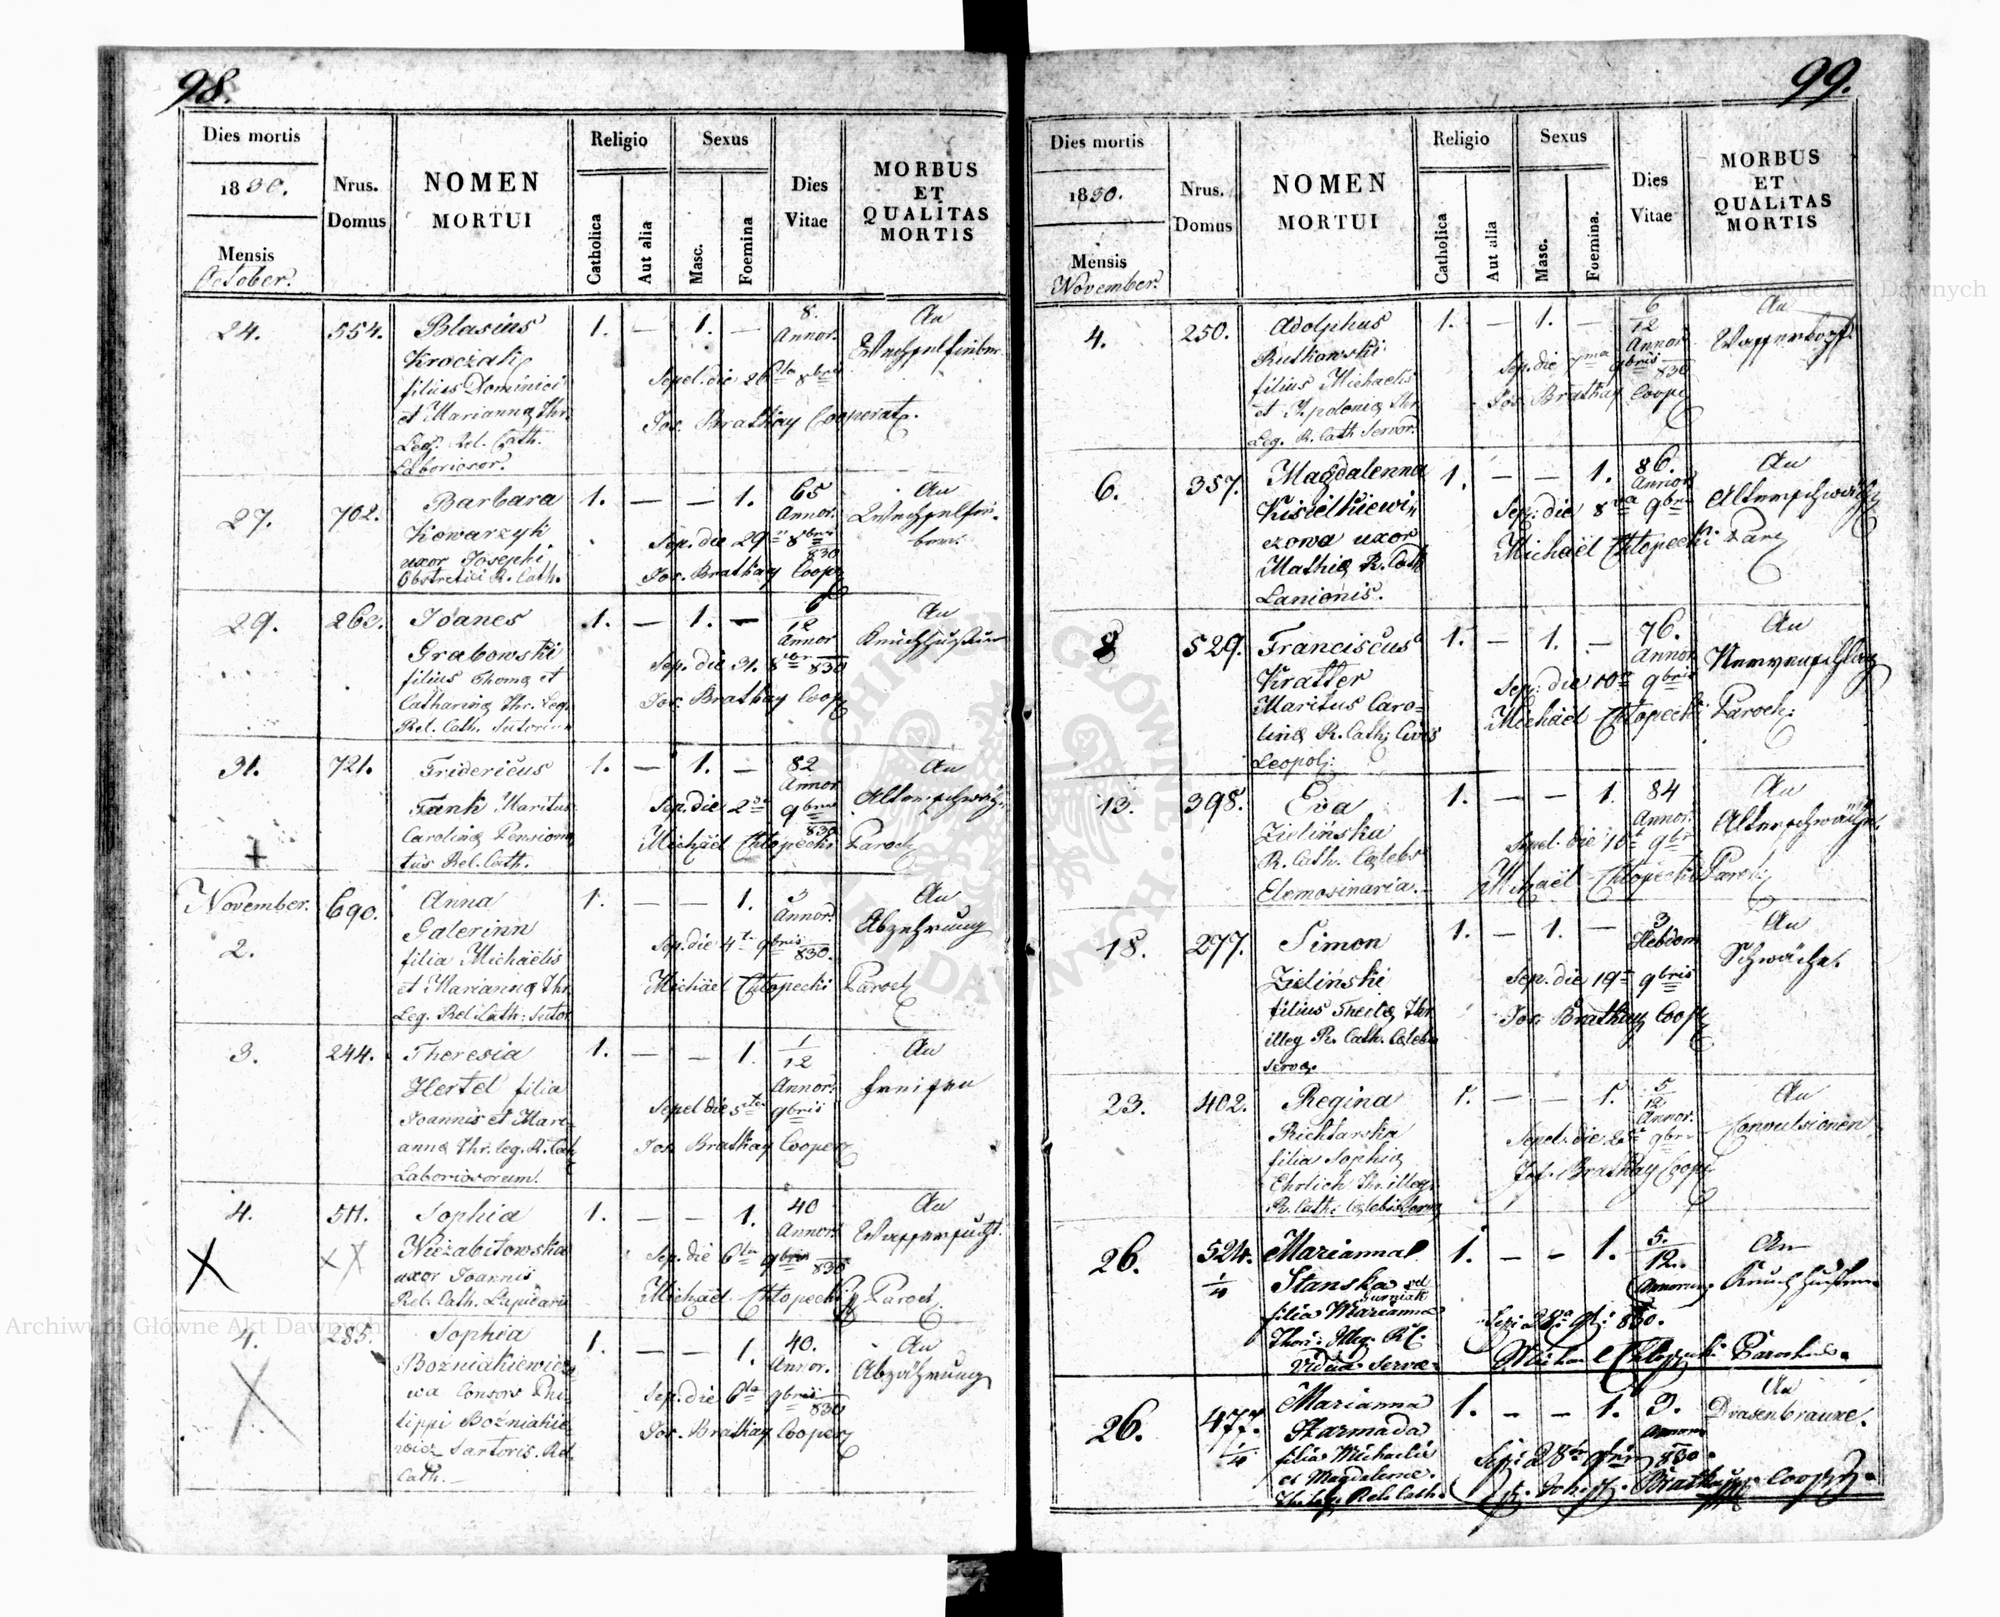 98.
Dies mortis
1830.
Mensis
October.
Nrus.
Domus
NOMEN
MORTUI
Religio
Catholica
Aut alia
Sexus
Masc.
Foemina
Dies
Vitae
MORBUS
ET
QUALITAS
MORTIS
24. 554. Blasius 1. — 1. — 8. Annor. An
filius Dominici Sepel. die 26ta 8bris
et Marianna Thr. Jos. Brathay Cooperat.
Leg. Rel. Cath.
Laboriosor.
27. 702. Barbara 1. — — 1. 65 Annor. An
Kowarzyk
uxor Josephi Sep. die 29 8bris 830
Obstretici R. Cath. Jos. Brathay Coop
29. 263. Joanes 1. — 1. — 6/12 Annor An
Grabowski
filius Thomæ et Sep. die 31. 8br 830
Catharinæ Thr. Leg. Jos. Brathay Coop
Rel. Cath. Sutorum
31. 721. Fridericus 1. — 1. — 82 Annor An
Fank Maritus Sep. die 2 9bris 830 Altersschwäche
Carolinæ Pensiona
tus Rel. Cath. Michäel Chłopecki Paroch
November. 690. Anna 1. — — 1. 3 Annor. An
2. Galerinn Abzehrung
filia Michäelis Sep. die 4t 9bris 830.
et Mariannæ Thr. Michäel Chłopecki Paroch
Leg. Rel. Cath. Sutor
3. 244. Theresia 1. — — 1. 1/12 Annor. An
Hertel filia Fraisen
Joannis et Mari- Sepel die 5ta 9bris
annæ Thr. leg. R. Cath Jos. Brathay Cooper
Laboriosorum.
4. 511. Sophia 1. — — 1. 40 Annor. An
Niezabitowska Wassersucht.
uxor Joannis Sep. die 6ta 9bris 830
Rel. Cath. Lapidarii Michäel Chłopecki Paroch.
4. 285. Sophia 1. — — 1. 40. Annor. An
Bozniakiewiczo Abzährung
wa Consors Phi- Sep. die 6ta 9bris 830
lippi Bozniakie- Jos. Brathay Cooper
wicz Sartoris. Rel.
Cath.
99.
Dies mortis
1830.
Mensis
November.
Nrus.
Domus
NOMEN
MORTUI
Religio
Catholica
Aut alia
Sexus
Masc.
Foemina.
Dies
Vitae
MORBUS
ET
QUALITAS
MORTIS
4. 250. Adolphus 1. — 1. — 6/12 Annor An
Rutkowski Sep. die 7ma 9bris 830 Wasserkopf
filius Michaelis Jos. Brathay Coop
et Apoloniæ Thr.
Leg. R. Cath Servor.
6. 357. Magdalenna 1. — — 1. 86. Annor An
Kisielkiewi- Sep. die 8va 9bris Altersschwäche
czowa uxor Michäel Chłopecki Par
Mathiæ R. Cath
Lanionis.
8 529. Franciscus 1. — 1. — 76. Annor An
Kratter Sep: die 10a 9bris Nervenschlag
Maritus Caro- Michäel Chłopecki Paroch:
linæ R. Cath: Civis
Leopol:
13. 398. Eva 1. — — 1. 84 Annor. An
Zielińska Altersschwäche.
R. Cath. Cælebs
Elemosinaria. Michäel Chłopecki Paroch:
18. 277. Simon 1. — 1. — 3 Hebdom An
Zieliński Sep. die 19a 9bris Schwäche.
filius Theclæ Thr Jos. Brathay Coop
illeg R. Cath. Cælebs
servæ.
23. 402. Regina 1. — — 1. 5/12 Annor. An
Richtarska Convulsionen
filia Sophiæ Jos. Brathay Coop
Ehrlich Thr. illeg.
R. Cath: Cælebis serv
26. 524. 1/4 Marianna 1. — — 1. 5./12. Annorum An
Stanska vel
filia Marianna Sep: 28a 9bris 830. Keuchhusten
Thori Illeg. R.C. Michael Chłopecki Parochus.
Viduæ Servæ
26. 477. 1/4 Marianna 1. — — 1. 3. Annor An
Harmada Drasenbraune.
filia Michaelis Sep: 28 9bris 830.
et Magdalenæ. Brathay Coop
Thr. leg. Rel. Cath.
Archiwum Główne Akt Dawnych
Archiwum Główne Akt Dawnych
ARCHIWUM GŁÓWNE AKT DAWNYCH